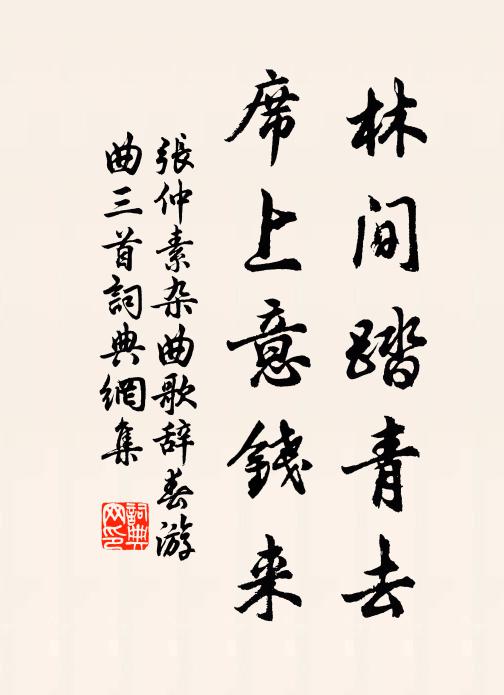 林间踏青去
席上意錢来
張仲素杂曲歌辞春游
曲三首詞典網集
詞典
网印